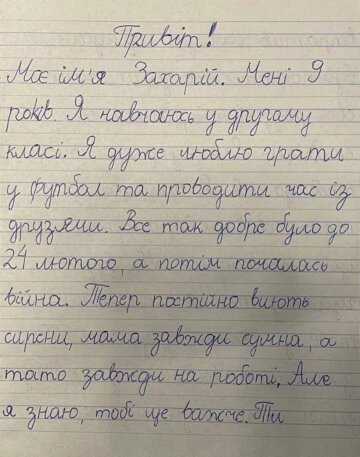 Привіт!
Моє ім'я Захарій. Мені 9
років. Я навчаюсь у другому
класі. Я дуже люблю грати
у футбол та проводити час із
друзями. Все так добре було до
24 лютого, а потім почалась
війна. Тепер постійно виють
сирени, мама завжди сумна, а
тато завжди на роботі. Але
я знаю, тобі ще важче. Ти